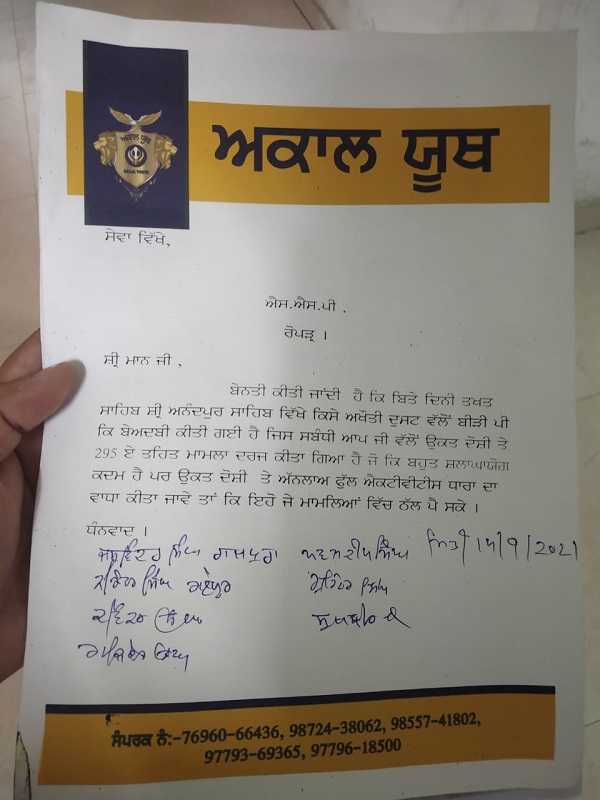 ਅਕਾਲ ਯੂਥ
ਅਕਾਲ ਯੂਥ
AKAAL YOUTH
ਸੇਵਾ ਵਿੱਖੇ,
ਐਸ.ਐਸ.ਪੀ .
ਰੋਪੜ੍ਹ ।
ਸ਼੍ਰੀ ਮਾਨ ਜੀ ,
ਬੇਨਤੀ ਕੀਤੀ ਜਾਂਦੀ ਹੈ ਕਿ ਬਿਤੇ ਦਿਨੀ ਤਖਤ
ਸਾਹਿਬ ਸ਼੍ਰੀ ਅਨੰਦਪੁਰ ਸਾਹਿਬ ਵਿੱਖੇ ਕਿਸੇ ਅਖੌਤੀ ਦੁਸਟ ਵੱਲੋਂ ਬੀੜੀ ਪੀ
ਕਿ ਬੇਅਦਬੀ ਕੀਤੀ ਗਈ ਹੈ ਜਿਸ ਸਬੰਧੀ ਆਪ ਜੀ ਵੱਲੋਂ ਉਕਤ ਦੋਸੀ ਤੇ
295 ਏ ਤਹਿਤ ਮਾਮਲਾ ਦਰਜ ਕੀਤਾ ਗਿਆ ਹੈ ਜੋ ਕਿ ਬਹੁਤ ਸਲਾਘਾਯੋਗ
ਕਦਮ ਹੈ ਪਰ ਉਕਤ ਦੋਸੀ ਤੇ ਅੱਨਲਾਅ ਫੁੱਲ ਐਕਟੀਵੀਟੀਸ ਧਾਰਾ ਦਾ
ਵਾਧਾ ਕੀਤਾ ਜਾਵੇ ਤਾਂ ਕਿ ਇਹੋ ਜੇ ਮਾਮਲਿਆਂ ਵਿੱਚ ਠੱਲ ਪੈ ਸਕੇ ।
ਧੰਨਵਾਦ ।
ਜਸਵਿੰਦਰ ਸਿੰਘ ਮਿਤੀ 15/9/2021
ਸਿੰਘ
ਸੰਪਰਕ ਨੰ:-76960-66436, 98724-38062, 98557-41802,
97793-69365, 97796-18500